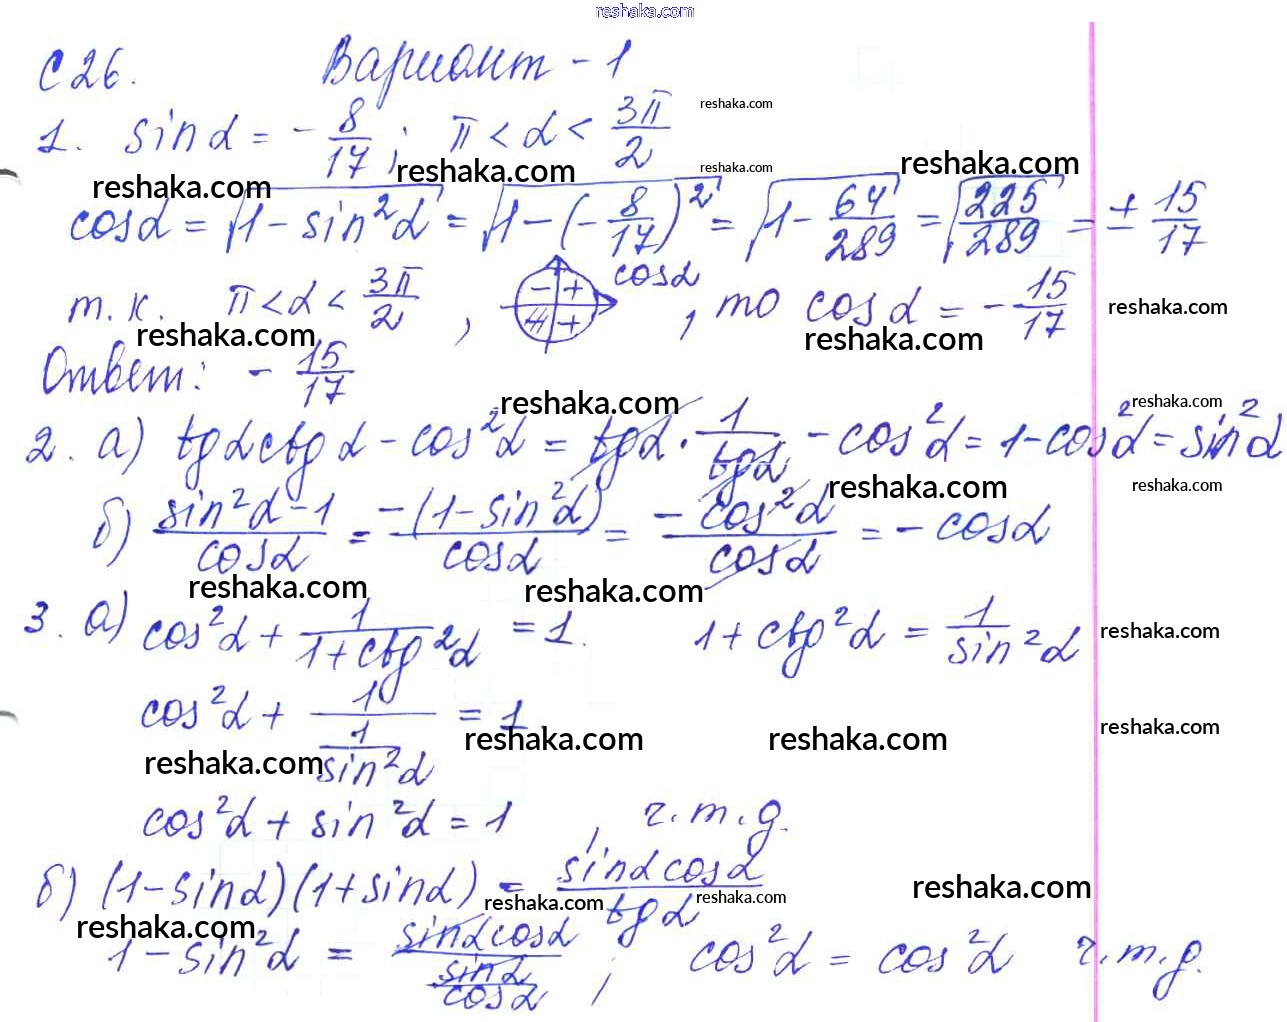 reshaka.com
С 26. Вариант - 1
1. sin α = - 8/17 ; π < α < 3π/2 reshaka.com
reshaka.com reshaka.com reshaka.com reshaka.com
cos α = √(1 - sin²α) = √(1 - (- 8/17)²) = √(1 - 64/289) = √(225/289) = ± 15/17
т. к. π < α < 3π/2 , - + # + cos α , то cos α = - 15/17 reshaka.com
reshaka.com reshaka.com
Ответ: - 15/17
reshaka.com reshaka.com
2. а) tg α ctg α - cos²α = tg α · 1/tg α - cos²α = 1 - cos²α = sin²α
reshaka.com reshaka.com
б) (sin²α - 1)/cos α = -(1 - sin²α)/cos α = - cos²α/cos α = - cos α
reshaka.com reshaka.com
3. а) cos²α + 1/(1 + ctg²α) = 1. 1 + ctg²α = 1/sin²α reshaka.com
cos²α + 1/(1/sin²α) = 1 reshaka.com reshaka.com reshaka.com
reshaka.com
cos²α + sin²α = 1 , ч. т. д.
б) (1 - sin α)(1 + sin α) = sin α cos α/tg α reshaka.com
reshaka.com reshaka.com reshaka.com
1 - sin²α = sin α cos α/(sin α/cos α) ; cos²α = cos²α ч. т. д.